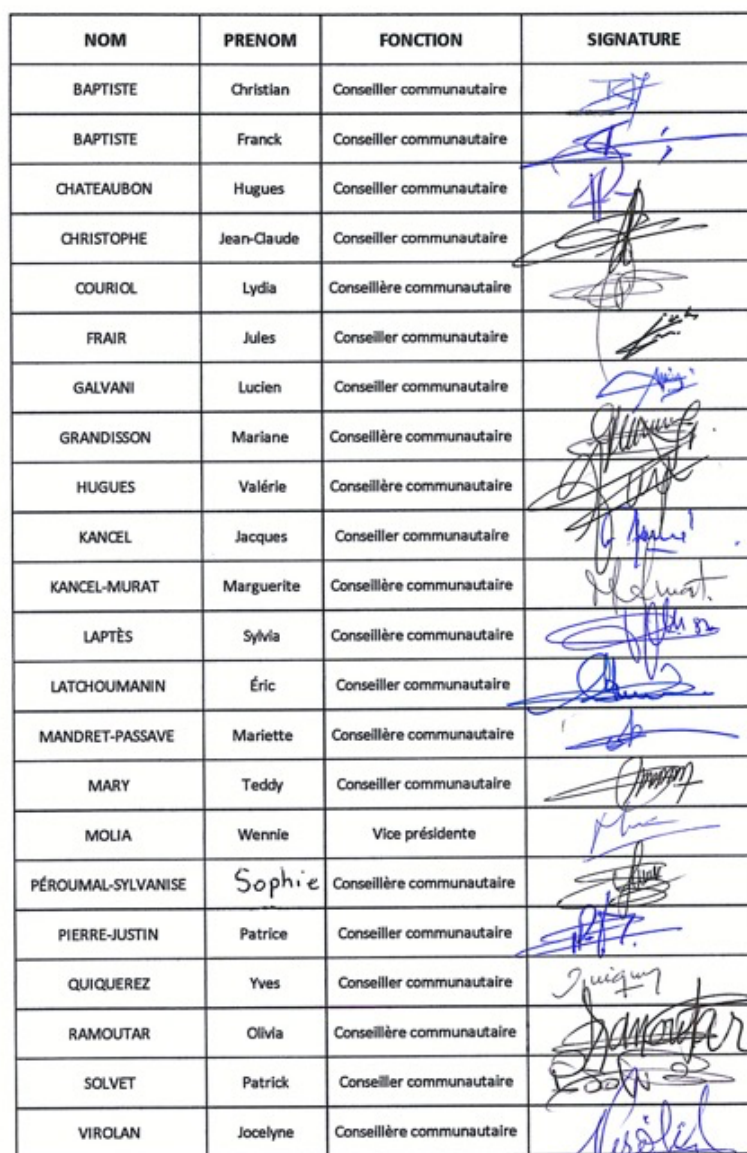 NOM PRENOM FONCTION SIGNATURE
BAPTISTE Christian Conseiller communautaire
BAPTISTE Franck Conseiller communautaire
CHATEAUBON Hugues Conseiller communautaire
CHRISTOPHE Jean-Claude Conseiller communautaire
COURIOL Lydia Conseillère communautaire
FRAIR Jules Conseiller communautaire
GALVANI Lucien Conseiller communautaire
GRANDISSON Mariane Conseillère communautaire
HUGUES Valérie Conseillère communautaire
KANCEL Jacques Conseiller communautaire
KANCEL-MURAT Marguerite Conseillère communautaire
LAPTÈS Sylvia Conseillère communautaire
LATCHOUMANIN Éric Conseiller communautaire
MANDRET-PASSAVE Mariette Conseillère communautaire
MARY Teddy Conseiller communautaire
MOLIA Wennie Vice présidente
PÉROUMAL-SYLVANISE Sophie Conseillère communautaire
PIERRE-JUSTIN Patrice Conseiller communautaire
QUIQUEREZ Yves Conseiller communautaire
RAMOUTAR Olivia Conseillère communautaire Ramoutar
SOLVET Patrick Conseiller communautaire
VIROLAN Jocelyne Conseillère communautaire